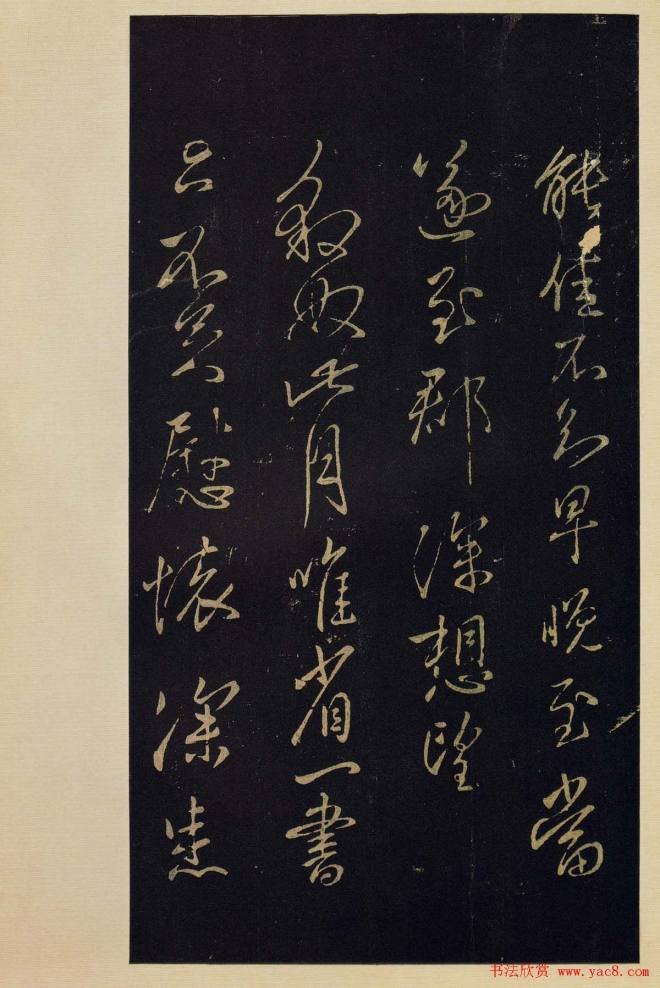 能佳不知早晚至當
遂至郡深想望
此月唯省一書
亦不足慰懷深
书法欣赏 www.yac8.com